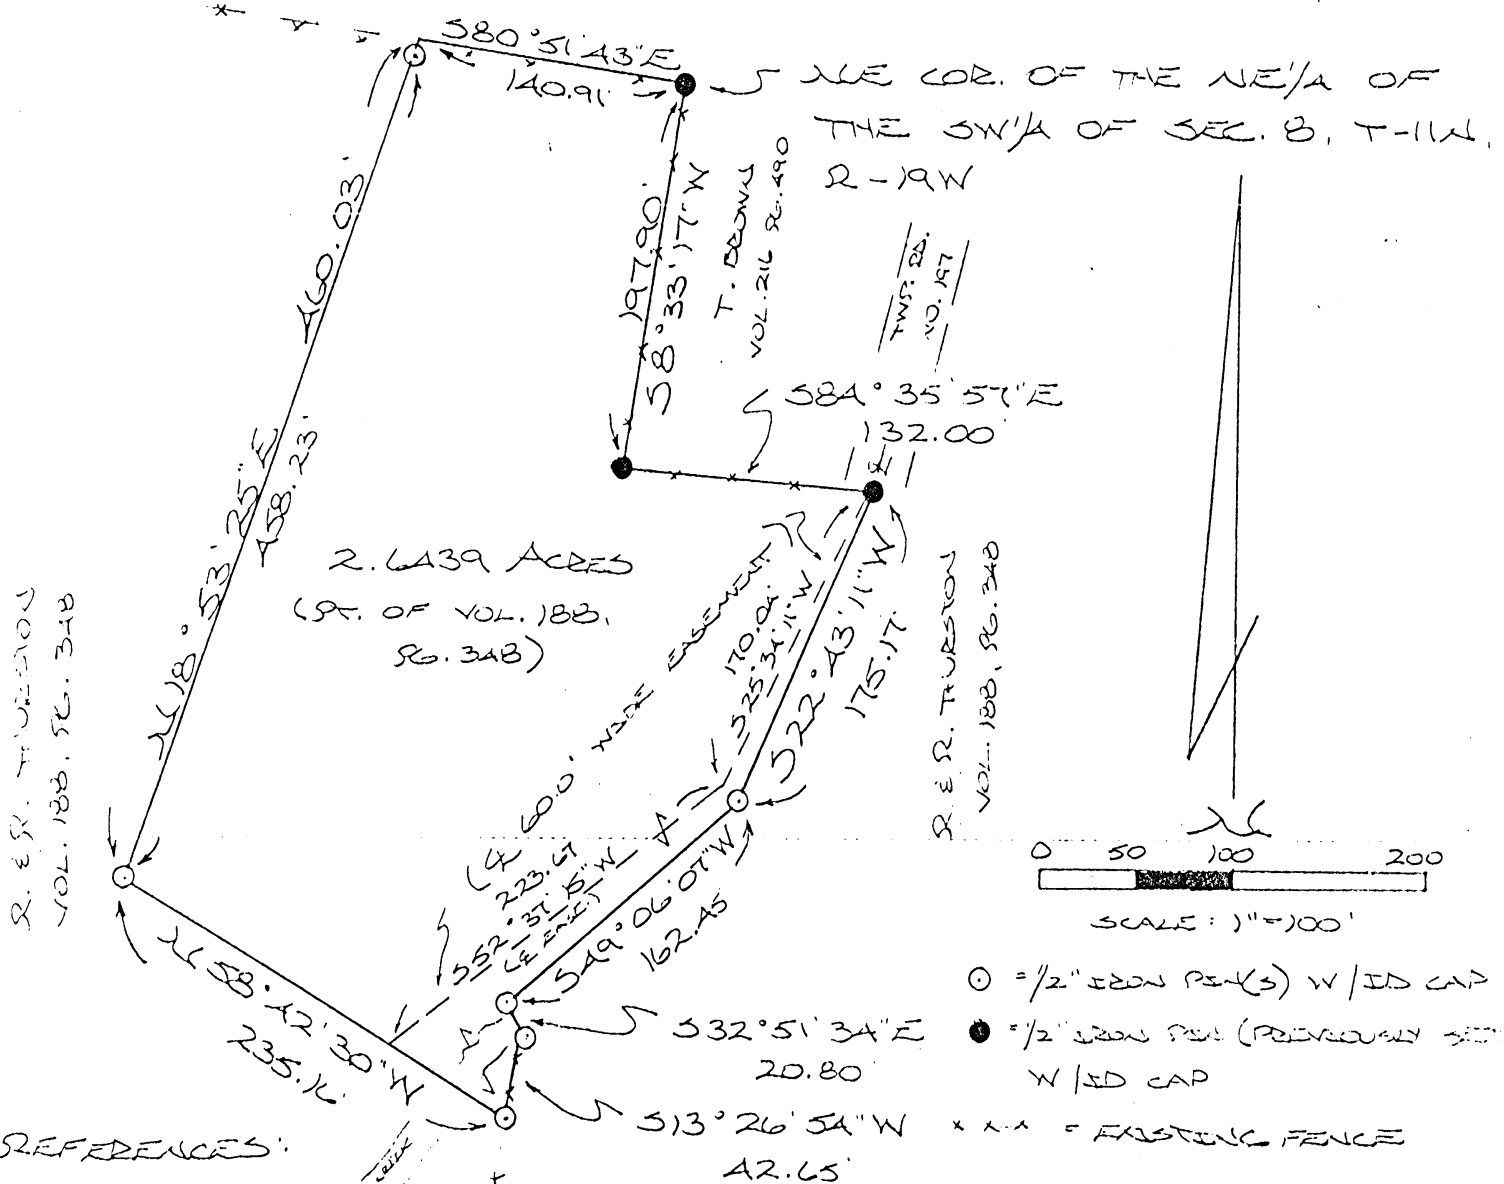 S80°51'43"E
140.91'
NE COR. OF THE NE1/4 OF
THE SW1/4 OF SEC. 8, T-11N,
R-19W
460.03'
N18°53'25"E
458.23'
197.90'
S8°33'17"W
T. BROWN
VOL. 216 PG. 490
TWP. RD.
NO. 197
S84°35'57"E
132.00'
2.6439 ACRES
(PT. OF VOL. 188,
PG. 348)
R. & R. THURSTON
VOL. 188, PG. 348
(℄ 60.0' WIDE EASEMENT)
170.04'
S25°34'11"W
S22°43'11"W
175.17'
R. & R. THURSTON
VOL. 188, PG. 348
223.67
S52°37'15"W
(℄ ENSE.)
S49°06'07"W
162.45
N58°42'30"W
235.16'
S32°51'34"E
20.80'
S13°26'54"W
42.65'
N
0 50 100 200
SCALE: 1"=100'
⊙ = 1/2" IRON PIN(S) W/ID CAP
● = 1/2" IRON PIN (PREVIOUSLY SET
W/ID CAP
x x x = EXISTING FENCE
REFERENCES: